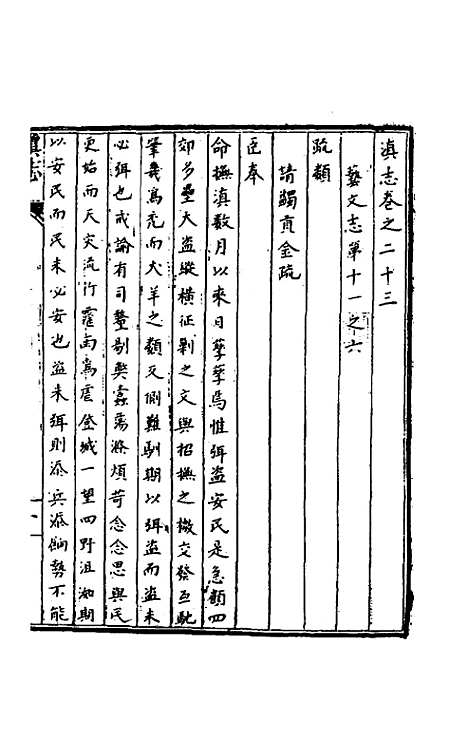 滇志卷之二十三
藝文志第十一之六
疏類
請蠲貢金疏
臣奉
命撫滇數月以來日孳孳焉惟弭盜安民是急顧四
郊多壘大盜縱橫征剿之文與招撫之檄交發互馳
肇幾為禿而犬羊之類反側難馴期以弭盜而盜未
必弭也戒諭有司釐剔獘蠹蕩滌煩苛念念思與民
更始而天災流行霪雨為虐登城一望四野沮洳期
以安民而民未必安也盜未弭則添兵添餉勢不能
滇志